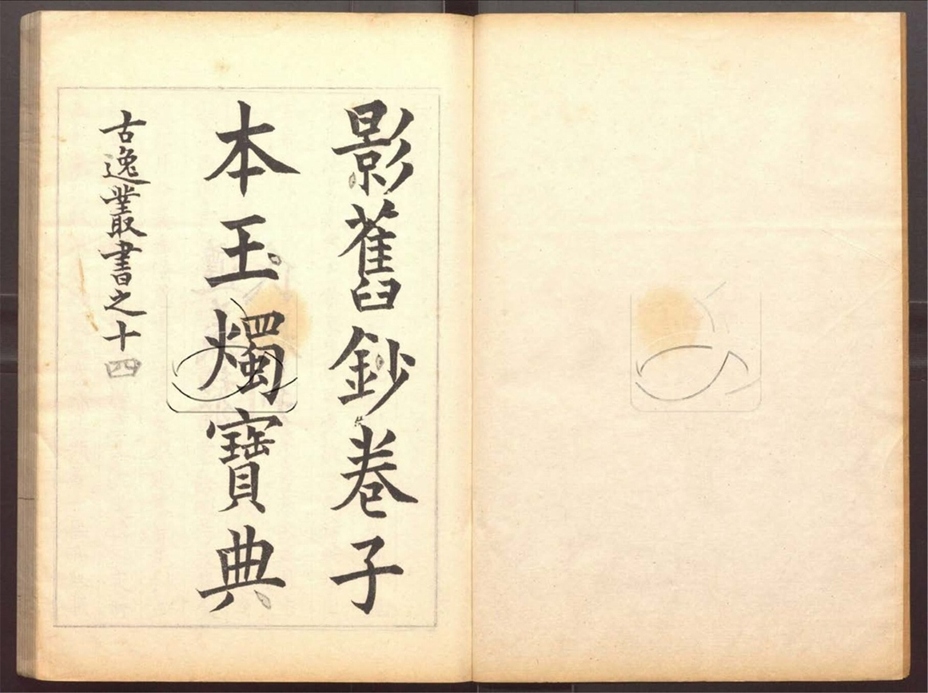 影舊鈔卷子
本玉燭寶典
古逸叢書之十四